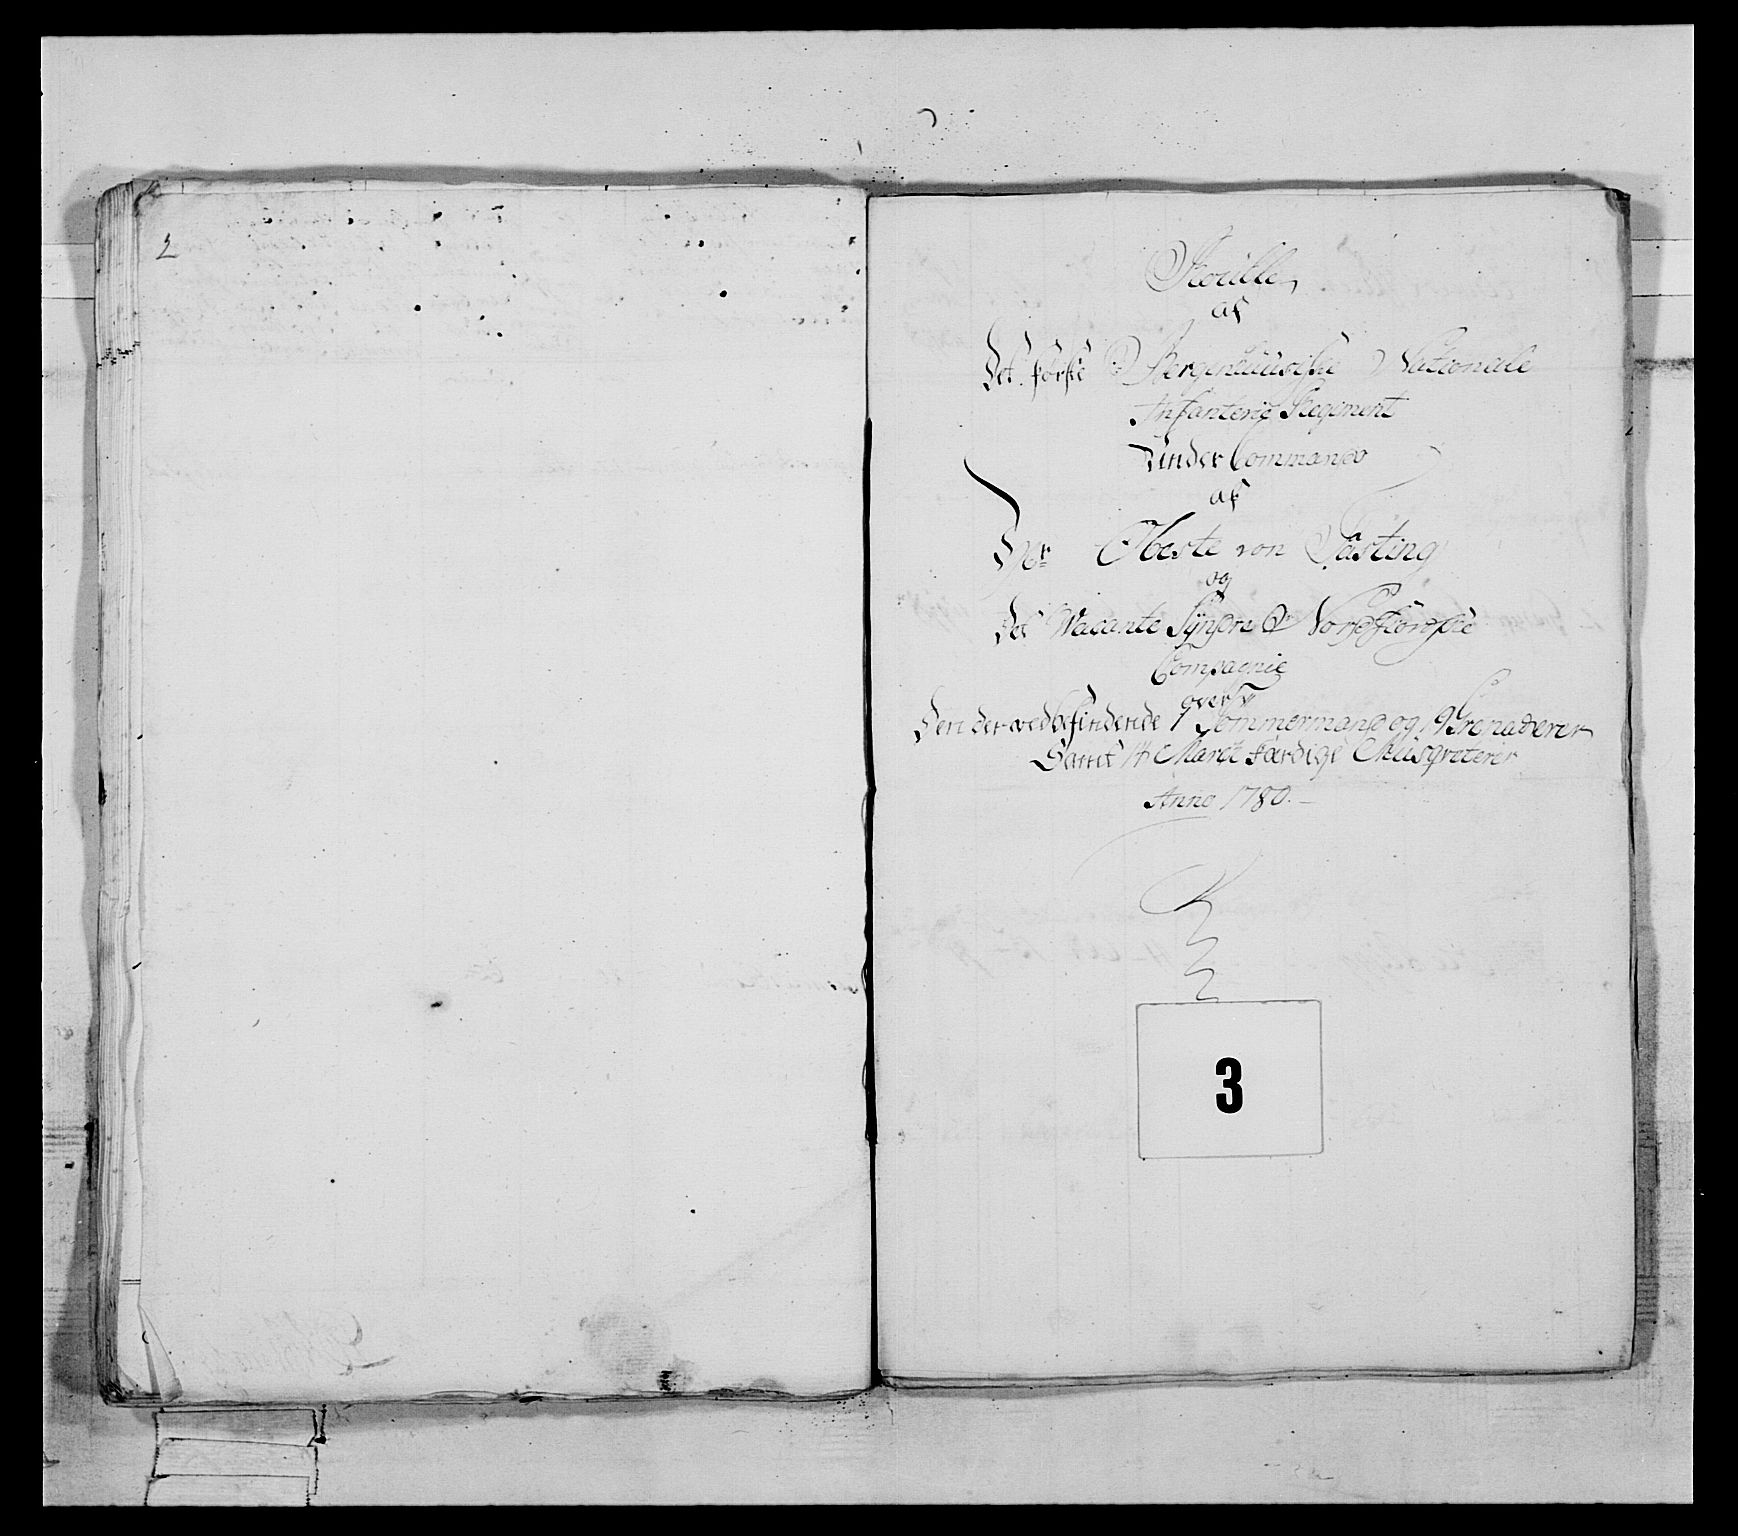 2
Roulle
af
Det første Bergenhuusiske Nationale
Infanterie Regiment
Under Commando
af
Hr Oberste von Fasting
og
Det Wacante Syndre Nordfiordske
Compagnie
over
Den der ved befindende 1 Tømmermand og 19 Grenaderer
Samt 14 March færdige Musqueterer
Anno 1780.
3